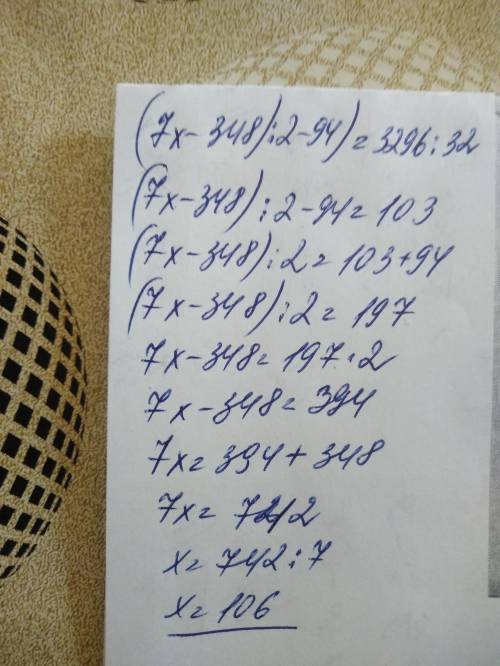 (7x-348):2-94)=3296:32
(7x-348):2-94=103
(7x-348):2=103+94
(7x-348):2=197
7x-348=197·2
7x-348=394
7x=394+348
7x=742
x=742:7
x=106